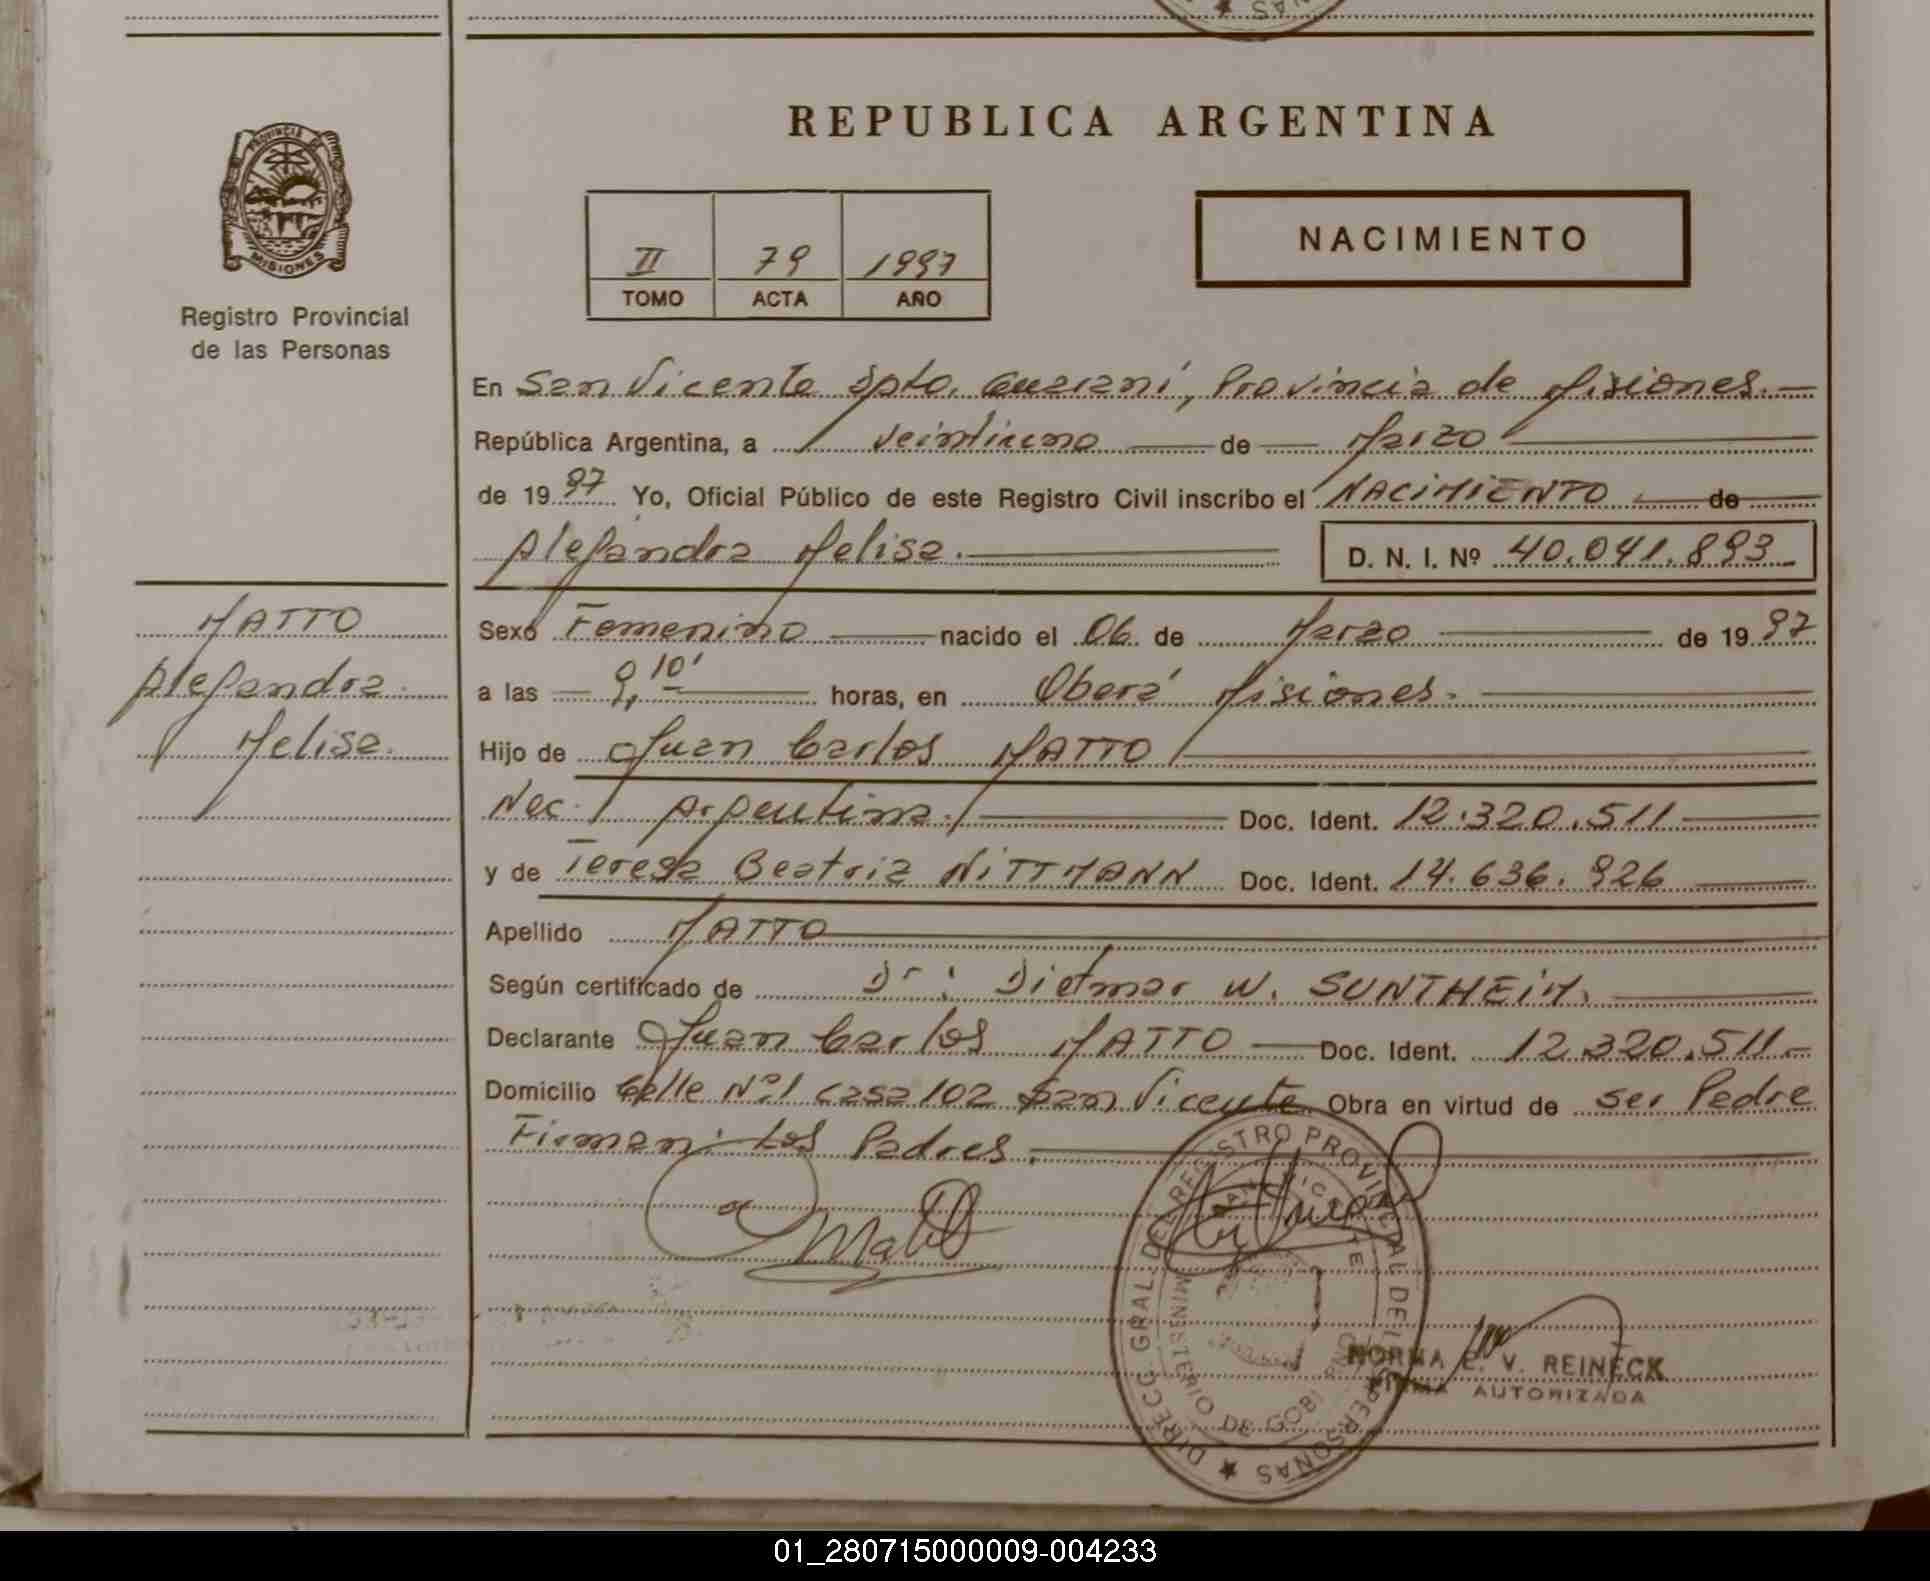 REPUBLICA ARGENTINA
PROVINCIA DE
MISIONES
Registro Provincial
de las Personas
II 79 1997
TOMO ACTA AÑO
NACIMIENTO
En San Vicente Dpto. Guaraní, Provincia de Misiones.
República Argentina, a veintiuno de Marzo
de 1997 Yo, Oficial Público de este Registro Civil inscribo el NACIMIENTO de
Alejandra Melisa. D. N. I. Nº 40.041.893
MATTO
Alejandra
Melisa.
Sexo Femenino nacido el 06 de Marzo de 1997
a las 9,10' horas, en Oberá Misiones.
Hijo de Juan Carlos MATTO
Nac. Argentina. Doc. Ident. 12.320.511
y de Teresa Beatriz NITTMANN Doc. Ident. 14.636.926
Apellido MATTO
Según certificado de Dr: Dietmar W. SUNTHEIM.
Declarante Juan Carlos MATTO Doc. Ident. 12.320.511
Domicilio Calle Nº1 casa 102 San Vicente Obra en virtud de ser Padre
Firman: Los Padres.
DIRECC. GRAL. DEL REGISTRO PROVINCIAL DE LAS PERSONAS
SAN VICENTE
MINISTERIO DE GOBI
NORMA E. V. REINECK
FIRMA AUTORIZADA
01_280715000009-004233